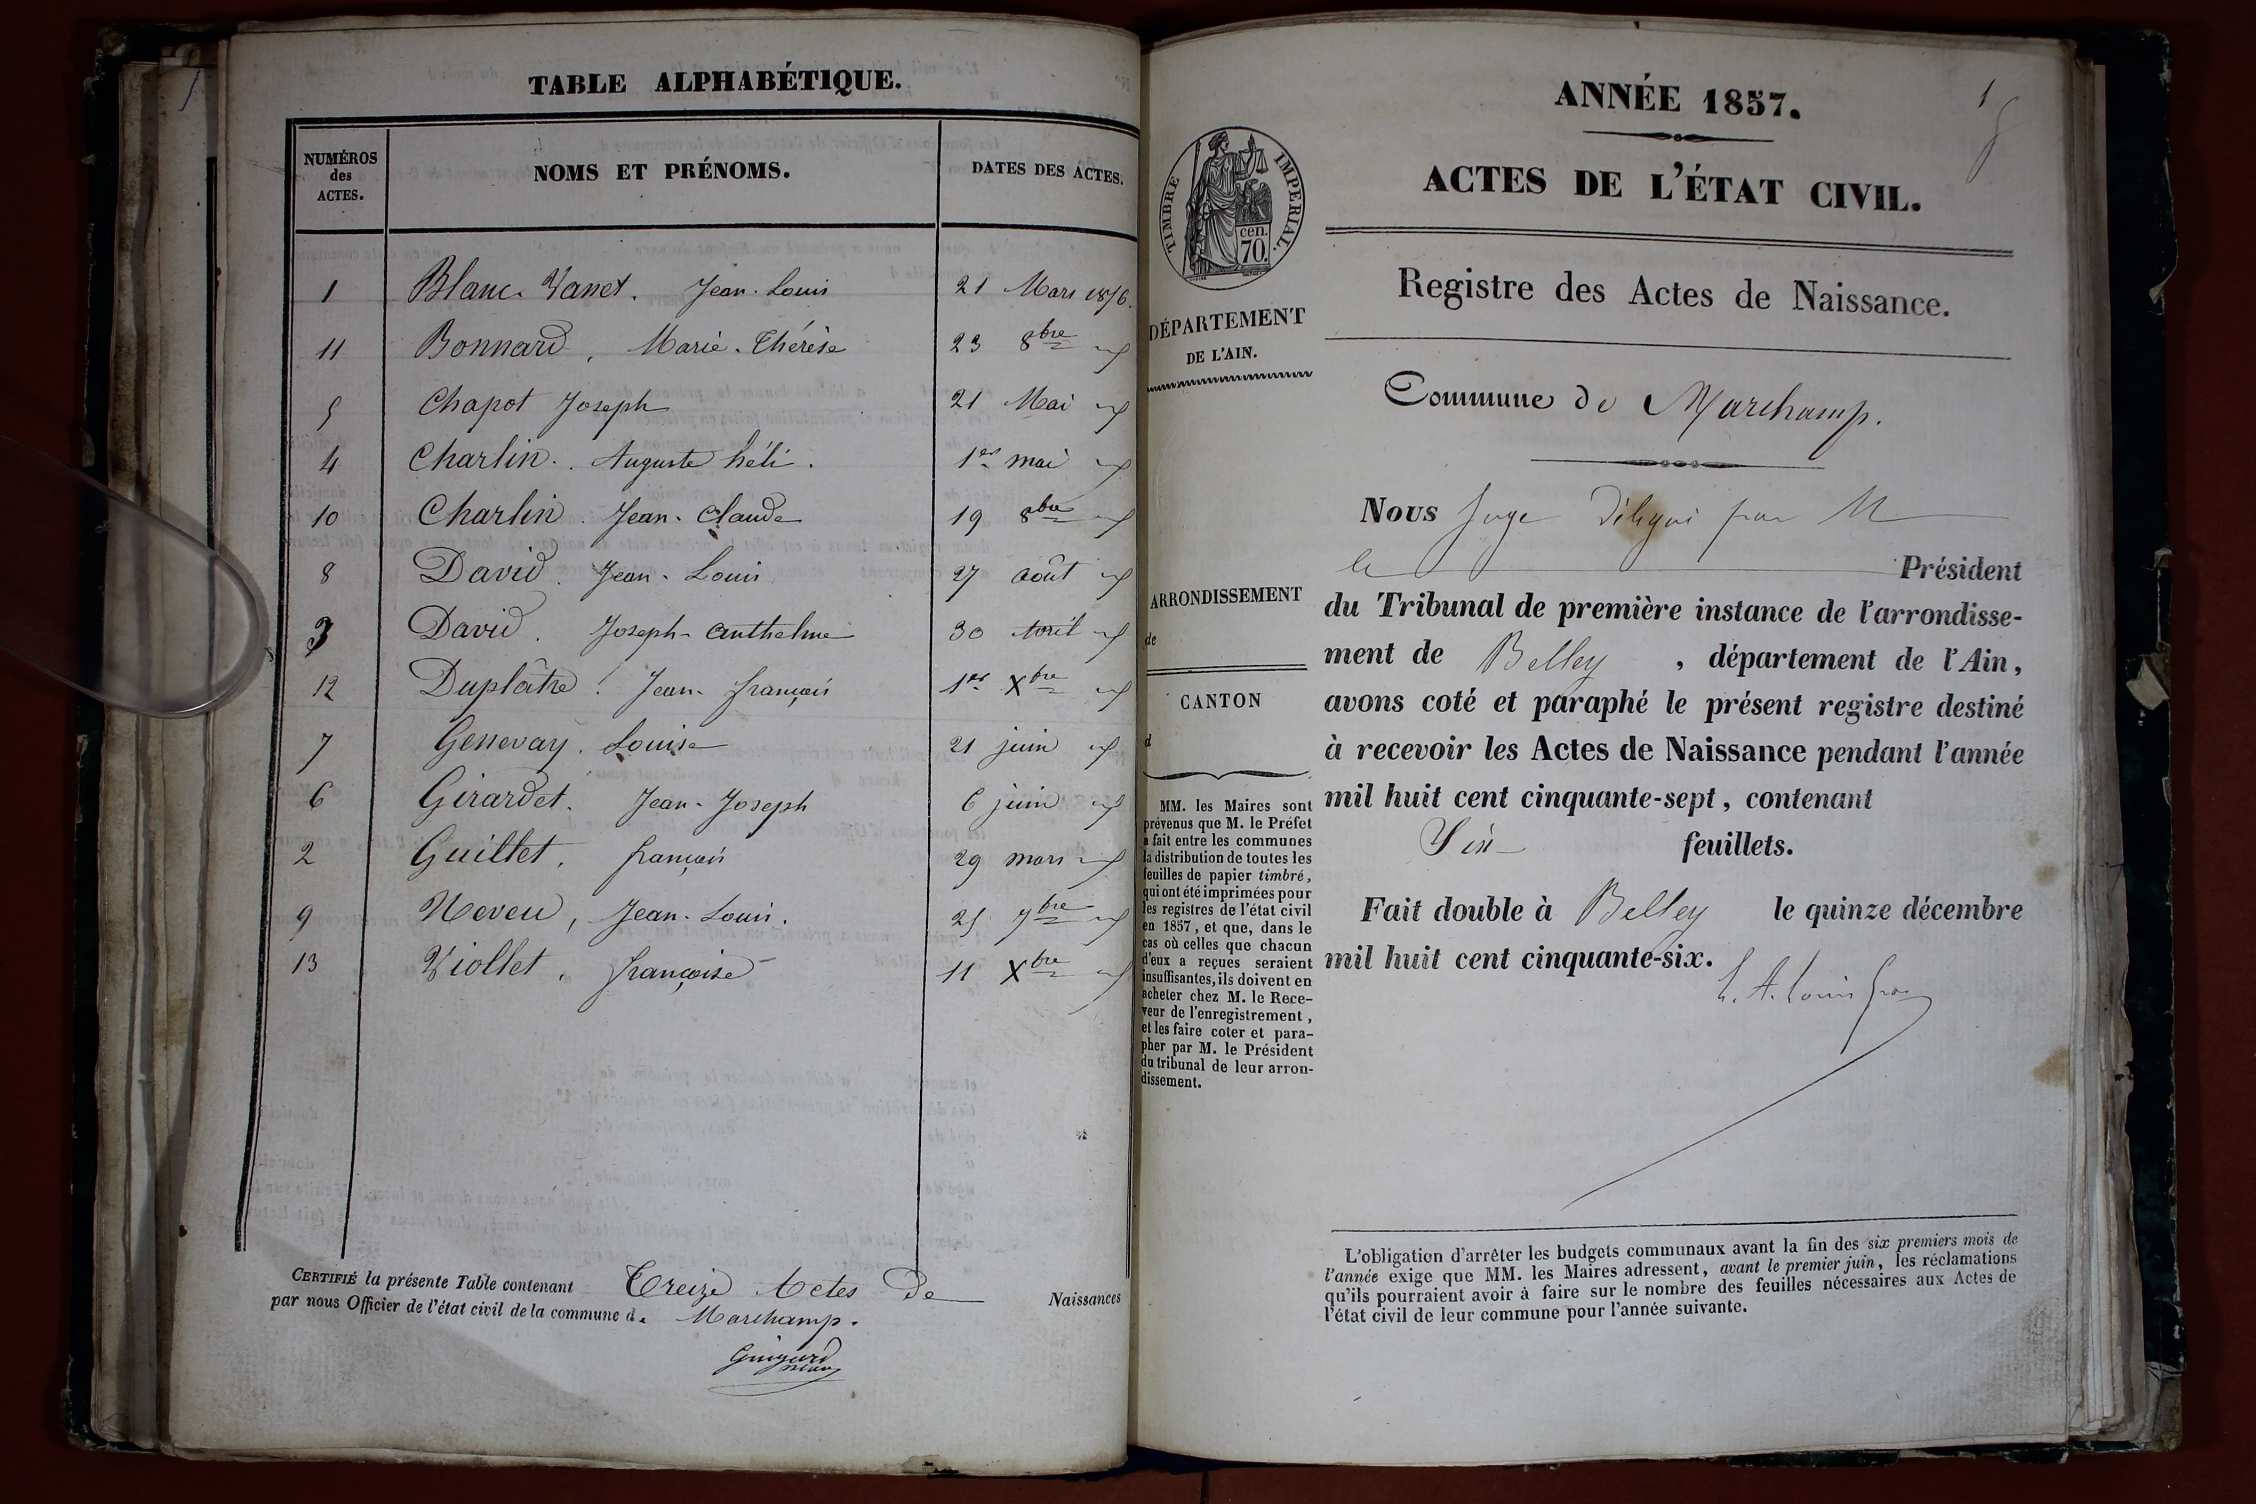 TABLE ALPHABÉTIQUE.
NUMÉROS des ACTES.
NOMS ET PRÉNOMS.
DATES DES ACTES.
1 Blanc-Vanet. Jean-Louis 21 Mars 1856.
11 Bonnard, Marie-Thérèse 23 8bre
5 Chapot Joseph 21 Mai
4 Charlin. Auguste héli. 1er mai
10 Charlin. Jean-Claude 19 8bre
8 David. Jean-Louis 27 août
3 David. Joseph-Anthelme 30 Avril
12 Duplâtre. Jean-françois 1er Xbre
7 Genevay. Louise 21 juin
6 Girardet. Jean-Joseph 6 juin
2 Guillet, françois 29 mars
9 Neveu, Jean-Louis. 25 7bre
13 Viollet, françoise 11 Xbre
CERTIFIÉ la présente Table contenant Treize Actes de Naissances
par nous Officier de l'état civil de la commune d. Marchamp.
Guigard
maire
ANNÉE 1857.
1
ACTES DE L'ÉTAT CIVIL.
TIMBRE IMPERIAL.
cen.
70.
Registre des Actes de Naissance.
DÉPARTEMENT
DE L'AIN.
Commune de Marchamp.
ARRONDISSEMENT
de
CANTON
d
MM. les Maires sont
prévenus que M. le Préfet
a fait entre les communes
la distribution de toutes les
feuilles de papier timbré,
qui ont été imprimées pour
les registres de l'état civil
en 1857, et que, dans le
cas où celles que chacun
d'eux a reçues seraient
insuffisantes, ils doivent en
acheter chez M. le Rece-
veur de l'enregistrement,
et les faire coter et para-
pher par M. le Président
du tribunal de leur arron-
dissement.
Nous Juge Délégué par M
le Président
du Tribunal de première instance de l'arrondisse-
ment de Belley, département de l'Ain,
avons coté et paraphé le présent registre destiné
à recevoir les Actes de Naissance pendant l'année
mil huit cent cinquante-sept, contenant
feuillets.
Fait double à Belley le quinze décembre
mil huit cent cinquante-six.
L'obligation d'arrêter les budgets communaux avant la fin des six premiers mois de
l'année exige que MM. les Maires adressent, avant le premier juin, les réclamations
qu'ils pourraient avoir à faire sur le nombre des feuilles nécessaires aux Actes de
l'état civil de leur commune pour l'année suivante.